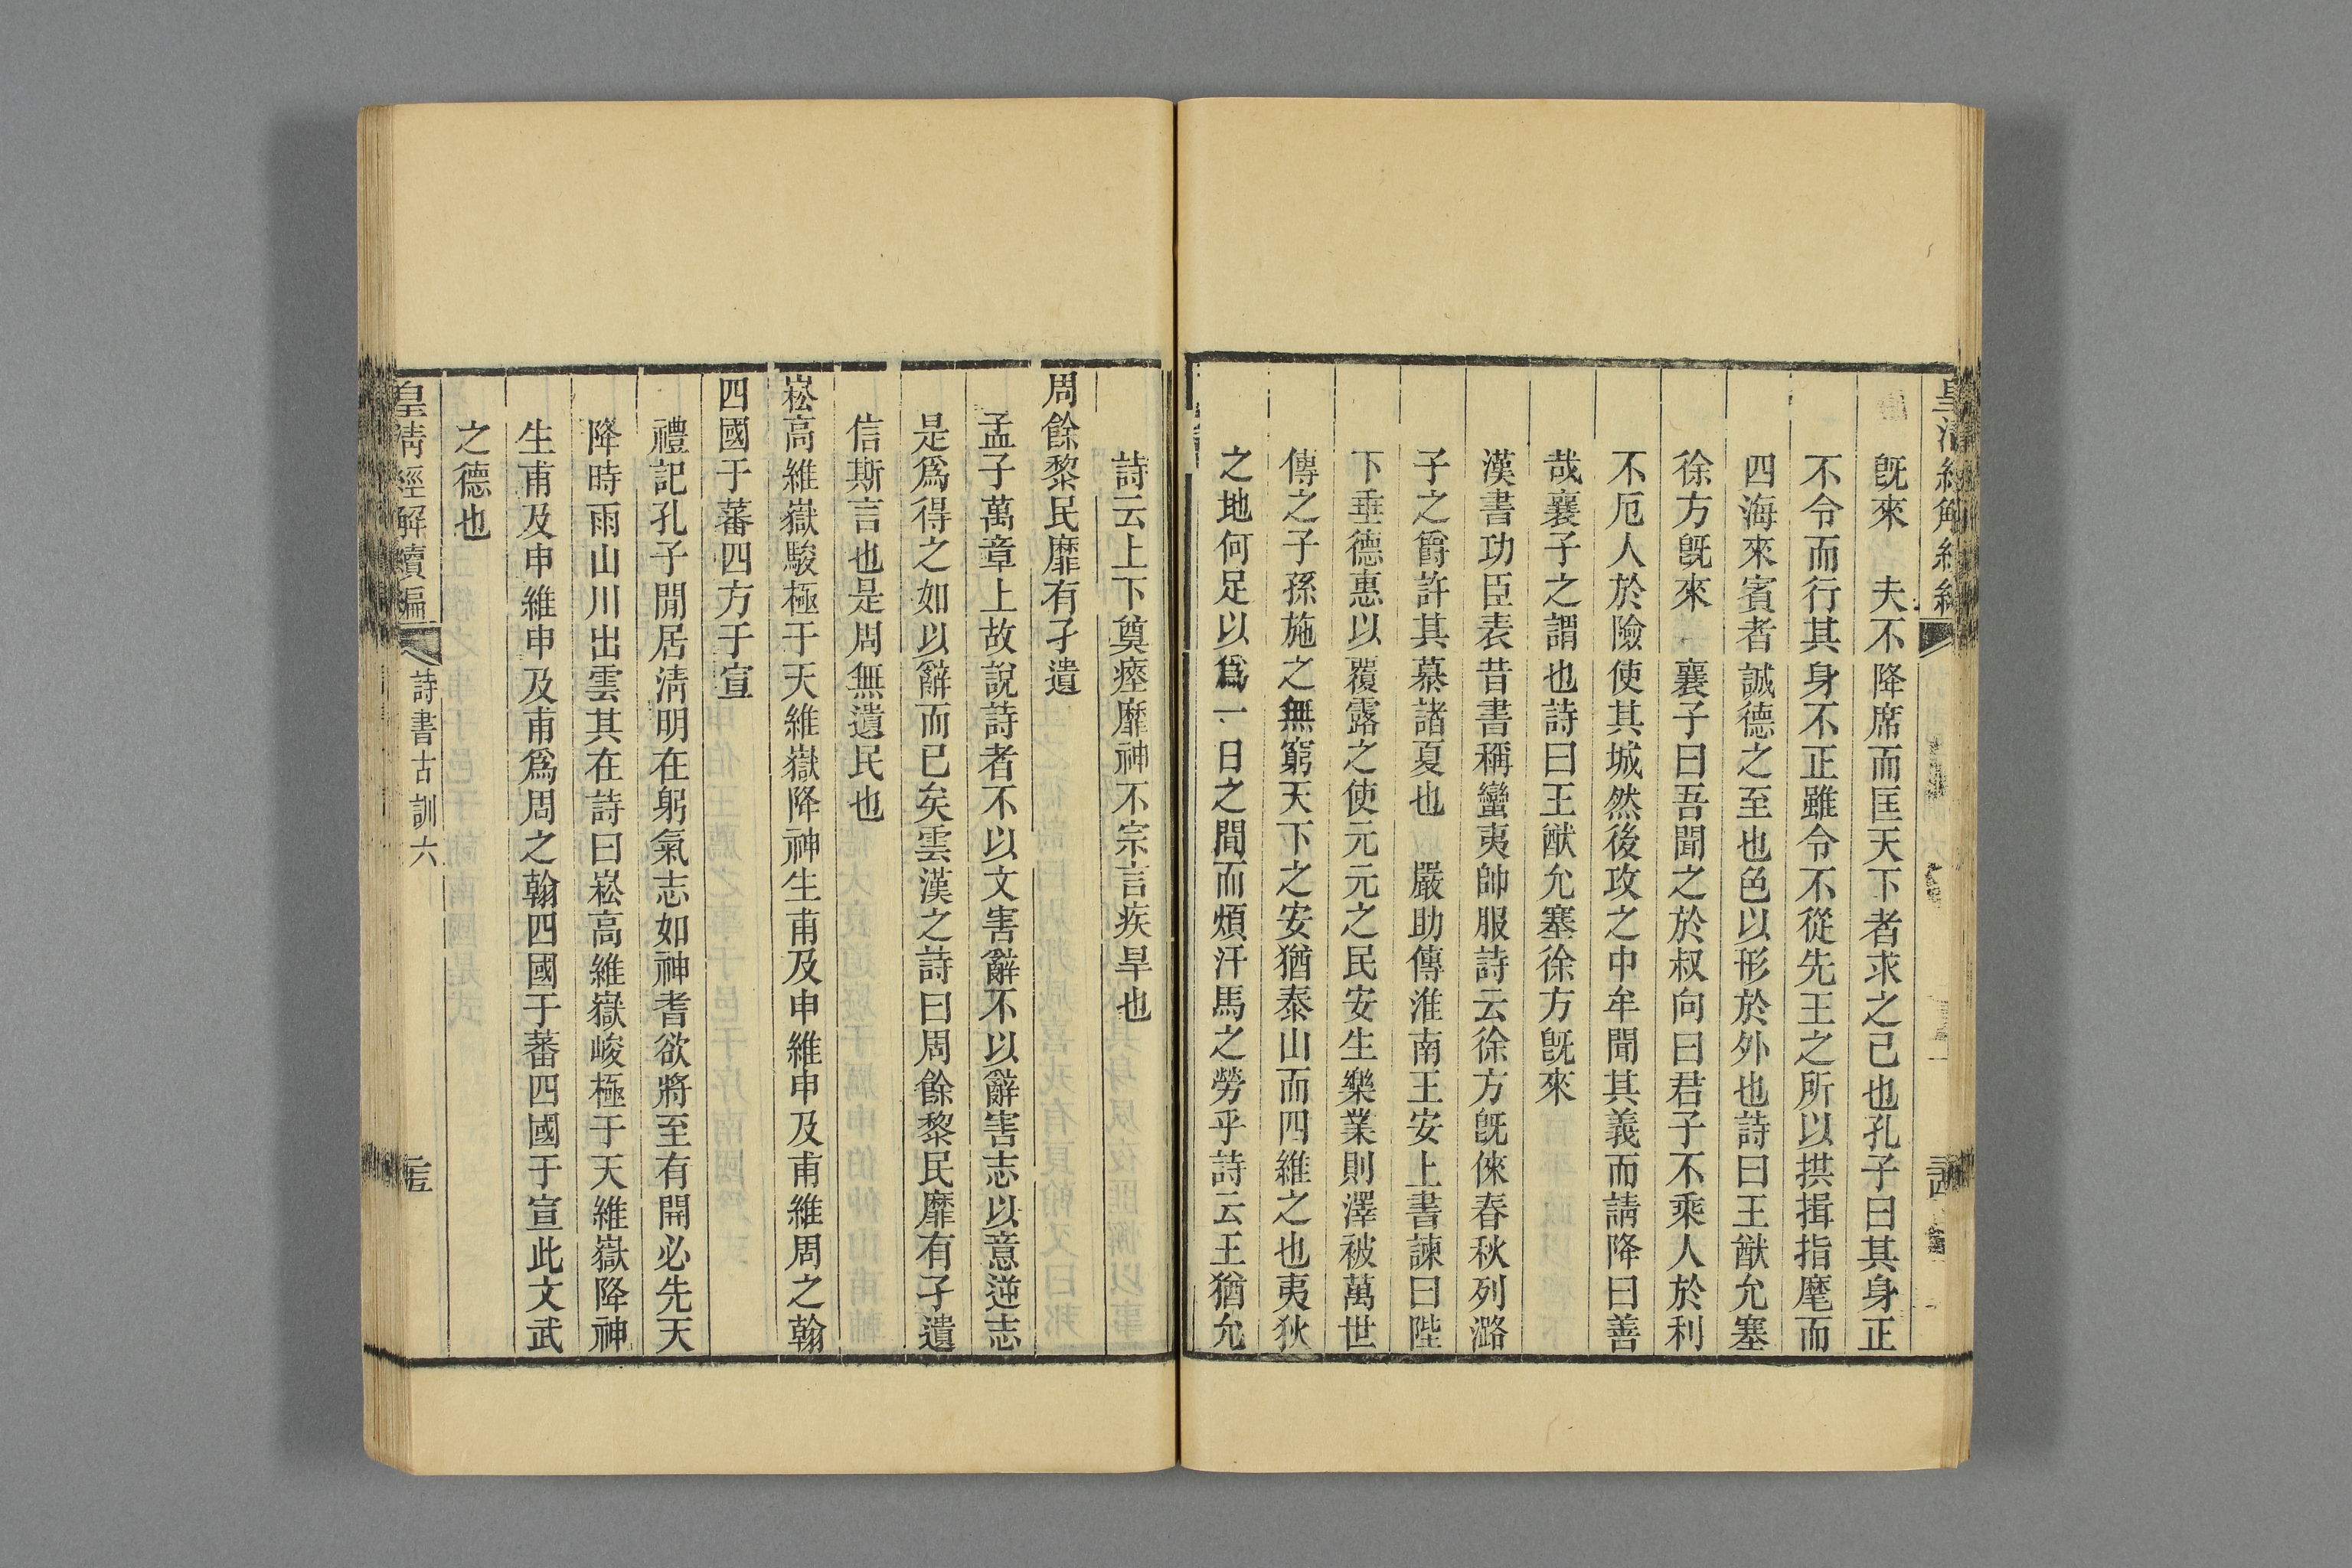 既來　夫不降席而匡天下者求之己也孔子曰其身正
不令而行其身不正雖令不從先王之所以拱揖指麾而
四海來賓者誠德之至也色以形於外也詩曰王猷允塞
徐方旣來　襄子曰吾聞之於叔向曰君子不乘人於利
不厄人於險使其城然後攻之中牟聞其義而請降曰善
哉襄子之謂也詩曰王猷允塞徐方旣來
漢書功臣表昔書稱蠻夷帥服詩云徐方旣倈春秋列潞
子之爵許其慕諸夏也　嚴助傳淮南王安上書諫曰陛
下垂德惠以覆露之使元元之民安生樂業則澤被萬世
傳之子孫施之無窮天下之安猶泰山而四維之也夷狄
之地何足以爲一日之間而煩汗馬之勞乎詩云王猶允
詩云上下奠瘞靡神不宗言疾旱也
周餘黎民靡有孑遺
孟子萬章上故說詩者不以文害辭不以辭害志以意逆志
是爲得之如以辭而已矣雲漢之詩曰周餘黎民靡有孑遺
信斯言也是周無遺民也
崧高維嶽駿極于天維嶽降神生甫及申維申及甫維周之翰
四國于蕃四方于宣
禮記孔子閒居淸明在躬氣志如神耆欲將至有開必先天
降時雨山川出雲其在詩曰崧高維嶽峻極于天維嶽降神
生甫及申維申及甫爲周之翰四國于蕃四國于宣此文武
之德也
皇淸經解續編　詩書古訓六　三五